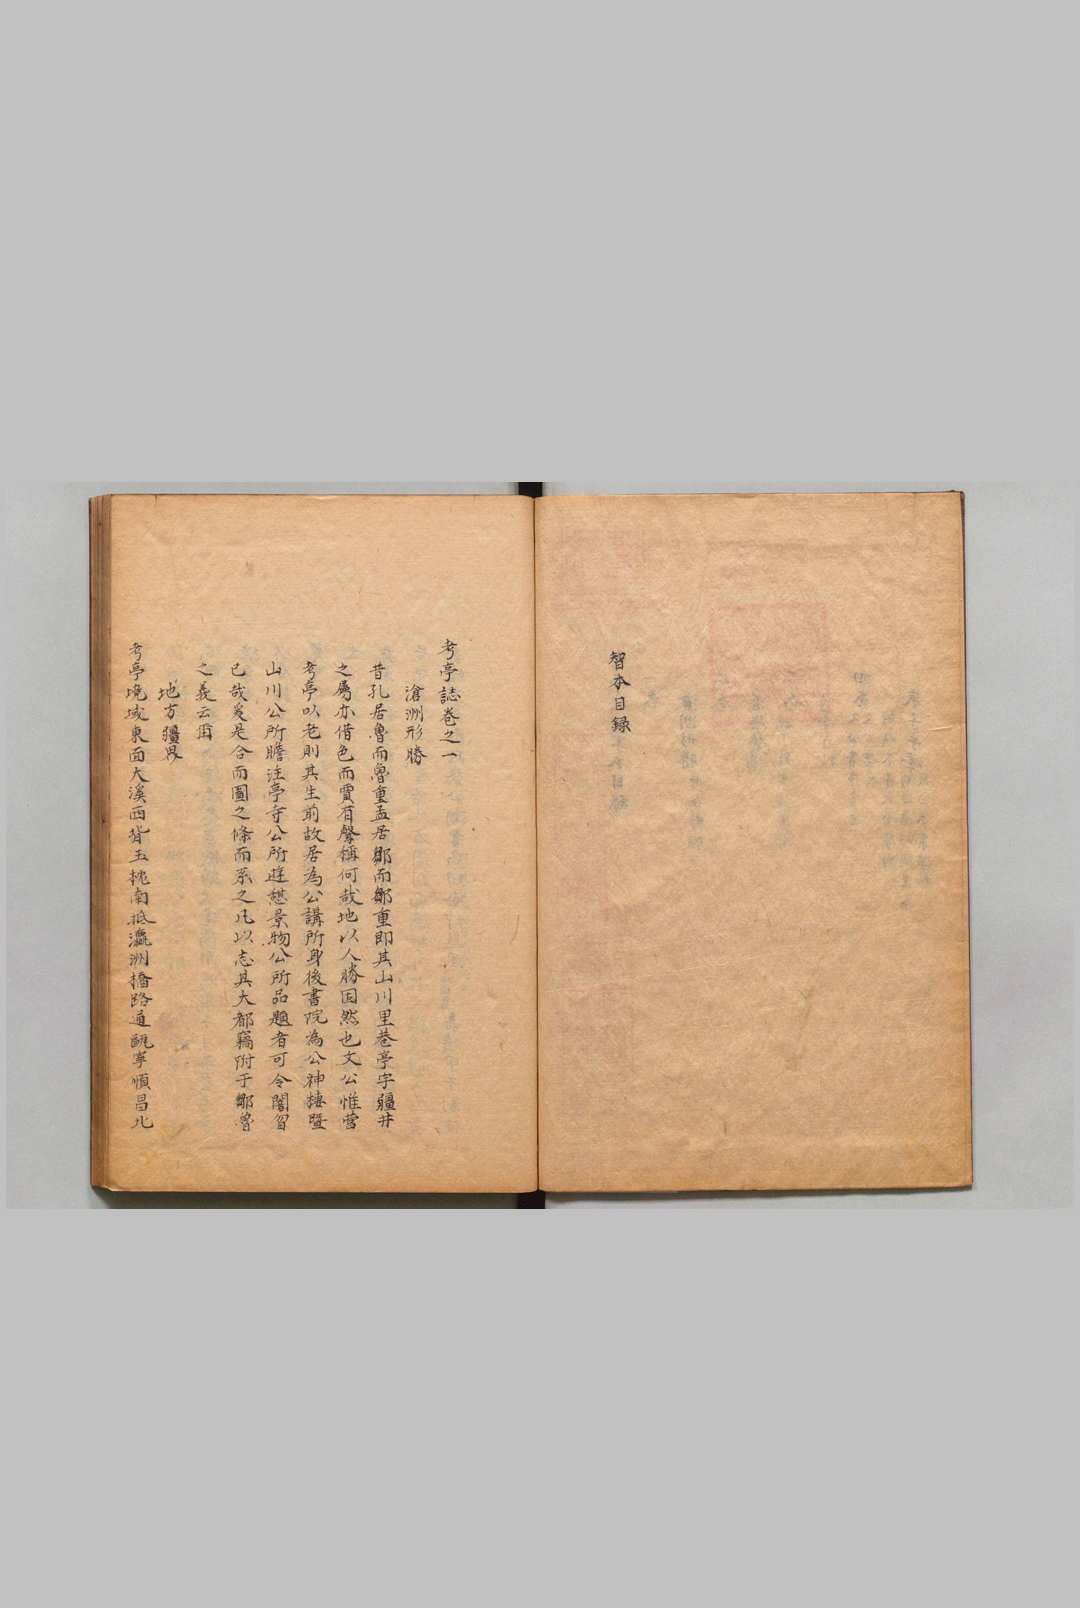 智本目録
考亭誌巻之一
滄洲形勝
昔孔居魯而魯重孟居鄒而鄒重即其山川里巷亭宇疆井
之屬亦借色而貫有聲稱何哉地以人勝固然也文公惟營
考亭以老則其生前故居為公講所身後書院為公神棲暨
山川公所瞻注亭寺公所遊憇景物公所品題者可令闇曶
已哉爰是合而圖之條而系之凡以志其大都竊附于鄒魯
之義云爾
地方疆界
考亭境域東面大溪西背玉枕南抵瀛洲橋路通甌寧順昌北